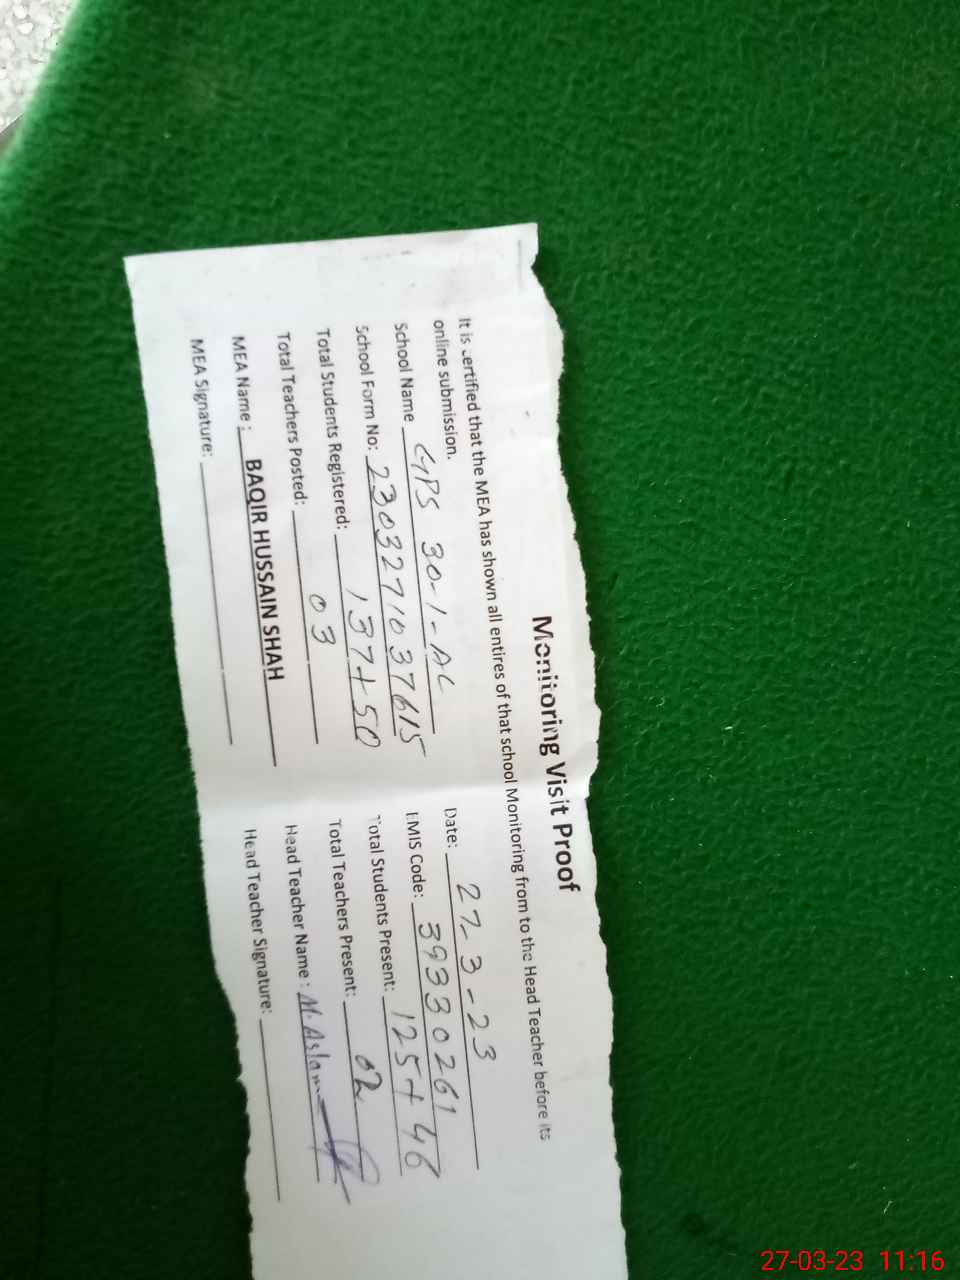 Monitoring Visit Proof
It is certified that the MEA has shown all entires of that school Monitoring from to the Head Teacher before its
online submission.
School Name GPS 30-1-AL Date: 27-3-23
School Form No: 2303271037615 EMIS Code: 39330261
Total Students Registered: 137+50 Total Students Present: 125+46
Total Teachers Posted: 03 Total Teachers Present: 02
MEA Name: BAQIR HUSSAIN SHAH Head Teacher Name: M. Aslam
MEA Signature: Head Teacher Signature:
27-03-23 11:16